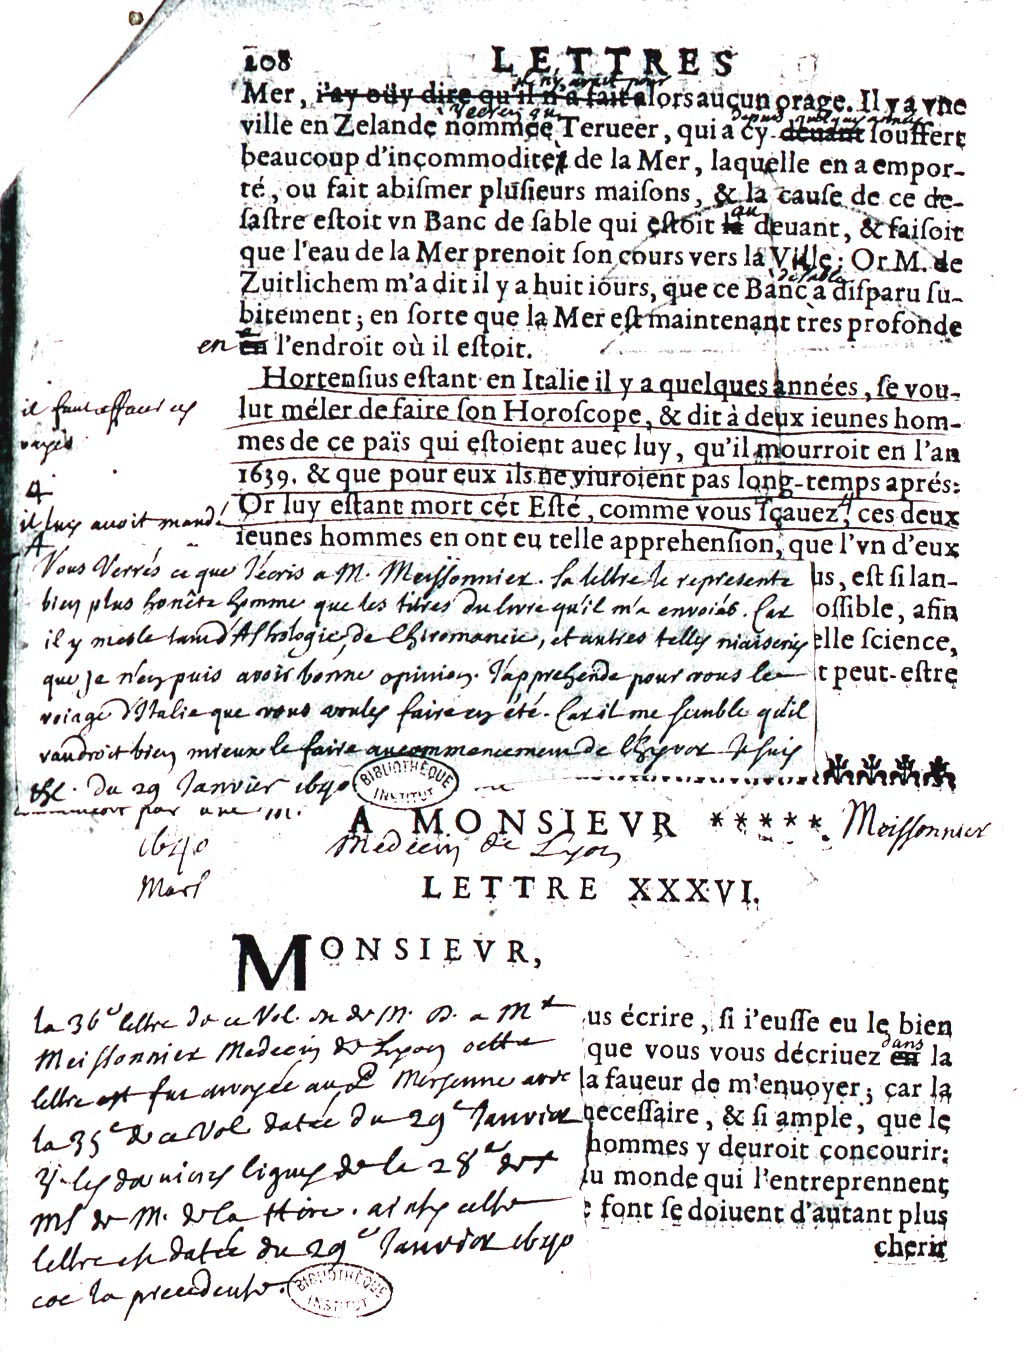 208 LETTRES
il n'y avoit pour
Mer, i'ay oüy dire qu'il n'a fait alors aucun orage. Il y a vne
Veeren ou depuis quelques années
ville en Zelande nommée Terueer, qui a cy-deuant souffert
beaucoup d'incommodité de la Mer, laquelle en a empor-
té, ou fait abismer plusieurs maisons, & la cause de ce de-
au
sastre estoit vn Banc de sable qui estoit là deuant, & faisoit
que l'eau de la Mer prenoit son cours vers la Ville; Or M. de
de sable
Zuitlichem m'a dit il y a huit iours, que ce Banc a disparu su-
bitement; en sorte que la Mer est maintenant tres profonde
en en l'endroit où il estoit.
Hortensius estant en Italie il y a quelques années, se vou-
il faut effacer ces
lut méler de faire son Horoscope, & dit à deux ieunes hom-
rayes
mes de ce païs qui estoient auec luy, qu'il mourroit en l'an
1639. & que pour eux ils ne viuroient pas long-temps aprés:
il luy avoit mandé
Or luy estant mort cét Esté, comme vous sçauez, ces deux
ieunes hommes en ont eu telle apprehension, que l'vn d'eux
Vous Verrés ce que J'écris a M. Meissonnier. Sa lettre le represente
us, est si lan-
bien plus honête homme que les titres du livre qu'il m'a envoiés. Car
ossible, afin
il y mesle tant d'Astrologie, de Chiromancie, et autres telles niaiseries
elle science,
que je n'en puis avoir bonne opinion. J'apprehende pour vous le
t peut-estre
voiage d'Italie que vous voulés faire cet été. Car il me semble qu'il
vaudroit bien mieux le faire au commencement de l'hyver Je suis
&c. du 29 Janvier 1640
BIBLIOTHÈQUE INSTITUT
commencer par une m.
A MONSIEVR *****. Meissonnier
Medecin de Lyon
1640
Mars
LETTRE XXXVI.
MONSIEVR,
la 36e lettre de ce Vol. est de M. D. a Mr
us écrire, si i'eusse eu le bien
Meissonnier Medecin de Lyon cette
dans
que vous vous décriuez en la
lettre est fut envoyée au P Mersenne avec
la faueur de m'enuoyer; car la
la 35e de ce Vol datée du 29e Janvier
necessaire, & si ample, que le
V. les dernieres lignes de la 28e des
hommes y deuroit concourir:
MS de M. de la Hire. ainsy cette
u monde qui l'entreprennent
lettre est datée du 29e Janvier 1640
font se doiuent d'autant plus
coe la precedente.
cherir
BIBLIOTHÈQUE INSTITUT